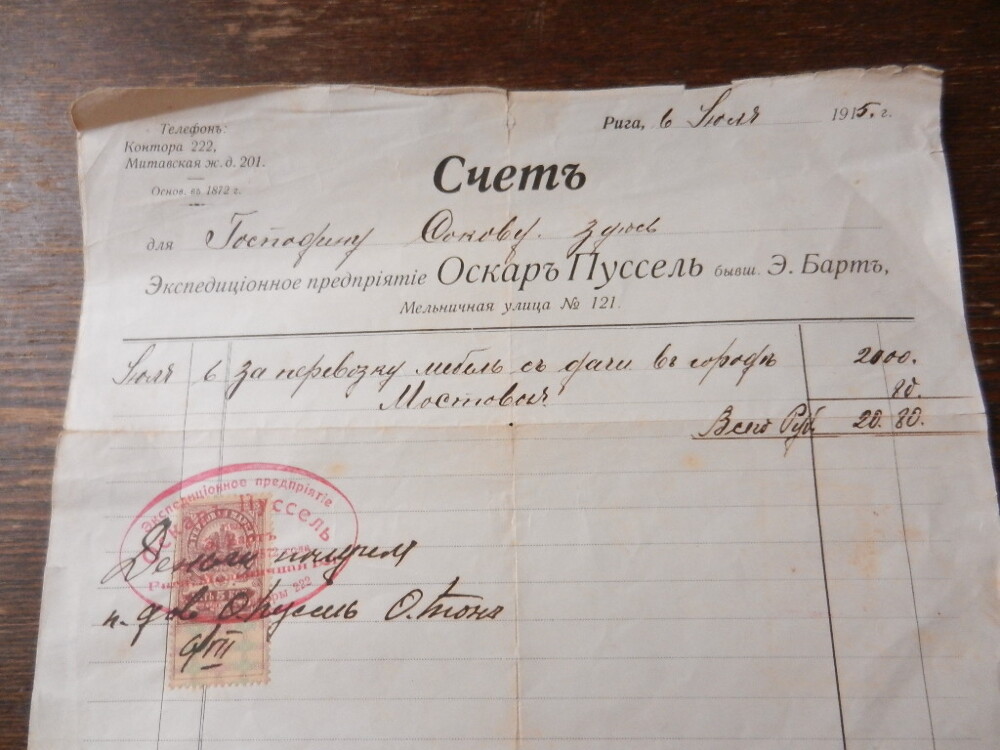 Телефонъ:
Контора 222,
Митавская ж. д. 201.
Основ. въ 1872 г.
Рига, 6 Июля 1915. г.
Счетъ
для Господину Сокову. здѣсь
Экспедиціонное предпріятіе Оскаръ Пуссель бывш. Э. Бартъ,
Мельничная улица № 121.
Июля 6 За перевозку мебель съ дачи въ городъ 20 00.
Мостовыя 80.
Всего Руб. 20. 80.
Экспедиціонное предпріятіе
Оскаръ Пуссель
Деньги получилъ
п. дов. О. Пуссель
9/VII